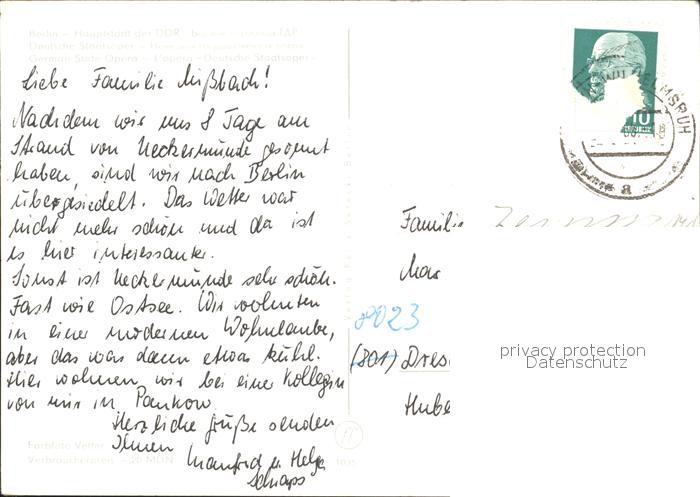 Berlin – Hauptstadt der DDR
Deutsche Staatsoper
German State Opera – L'opera «Deutsche Staatsoper»
Liebe Familie Mißbach!
Nachdem wir uns 8 Tage am
Strand von Ueckermünde gesonnt
haben, sind wir nach Berlin
übergesiedelt. Das Wetter war
nicht mehr schön und da ist
es hier interessanter.
Sonst ist Ueckermünde sehr schön.
Fast wie Ostsee. Wir wohnten
in einer modernen Wohnlaube,
aber das war dann etwas kühl.
Hier wohnen wir bei einer Kollegin
von mir in Pankow.
Herzliche Grüße senden
Ihnen
Manfred u. Helga
Schaps
Farbfoto
Verbraucherpreis –,20 MDN
10
Familie
8023
(801) Dres
Hube
privacy protection
Datenschutz